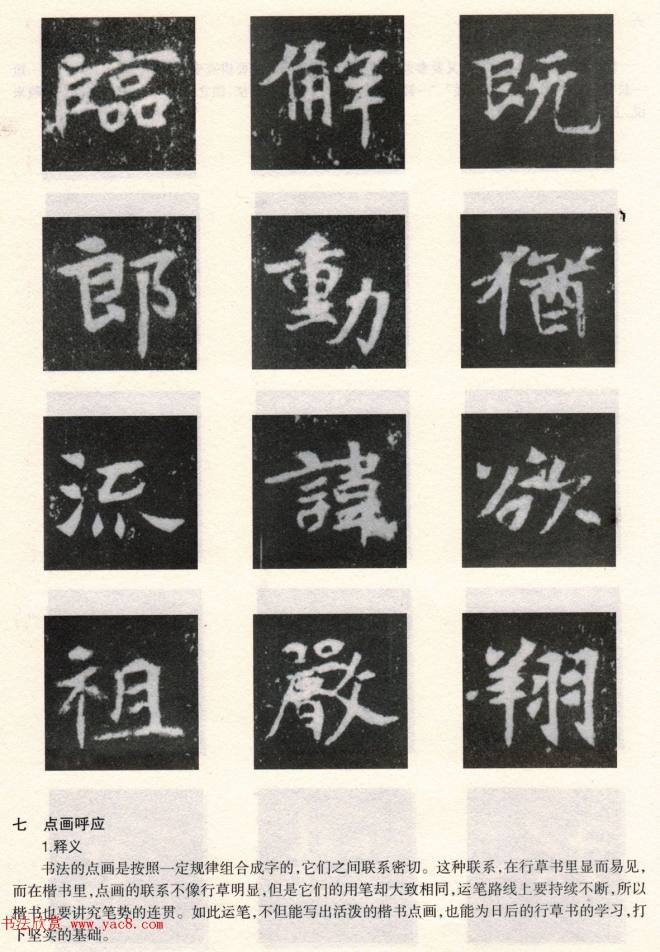 臨 解 既
郎 動 猶
流 諱 欲
祖 嚴 翔
七 点画呼应
1.释义
书法的点画是按照一定规律组合成字的,它们之间联系密切。这种联系,在行草书里显而易见,
而在楷书里,点画的联系不像行草明显,但是它们的用笔却大致相同,运笔路线上要持续不断,所以
楷书也要讲究笔势的连贯。如此运笔,不但能写出活泼的楷书点画,也能为日后的行草书的学习,打
下坚实的基础。
书法欣赏 www.yac8.com